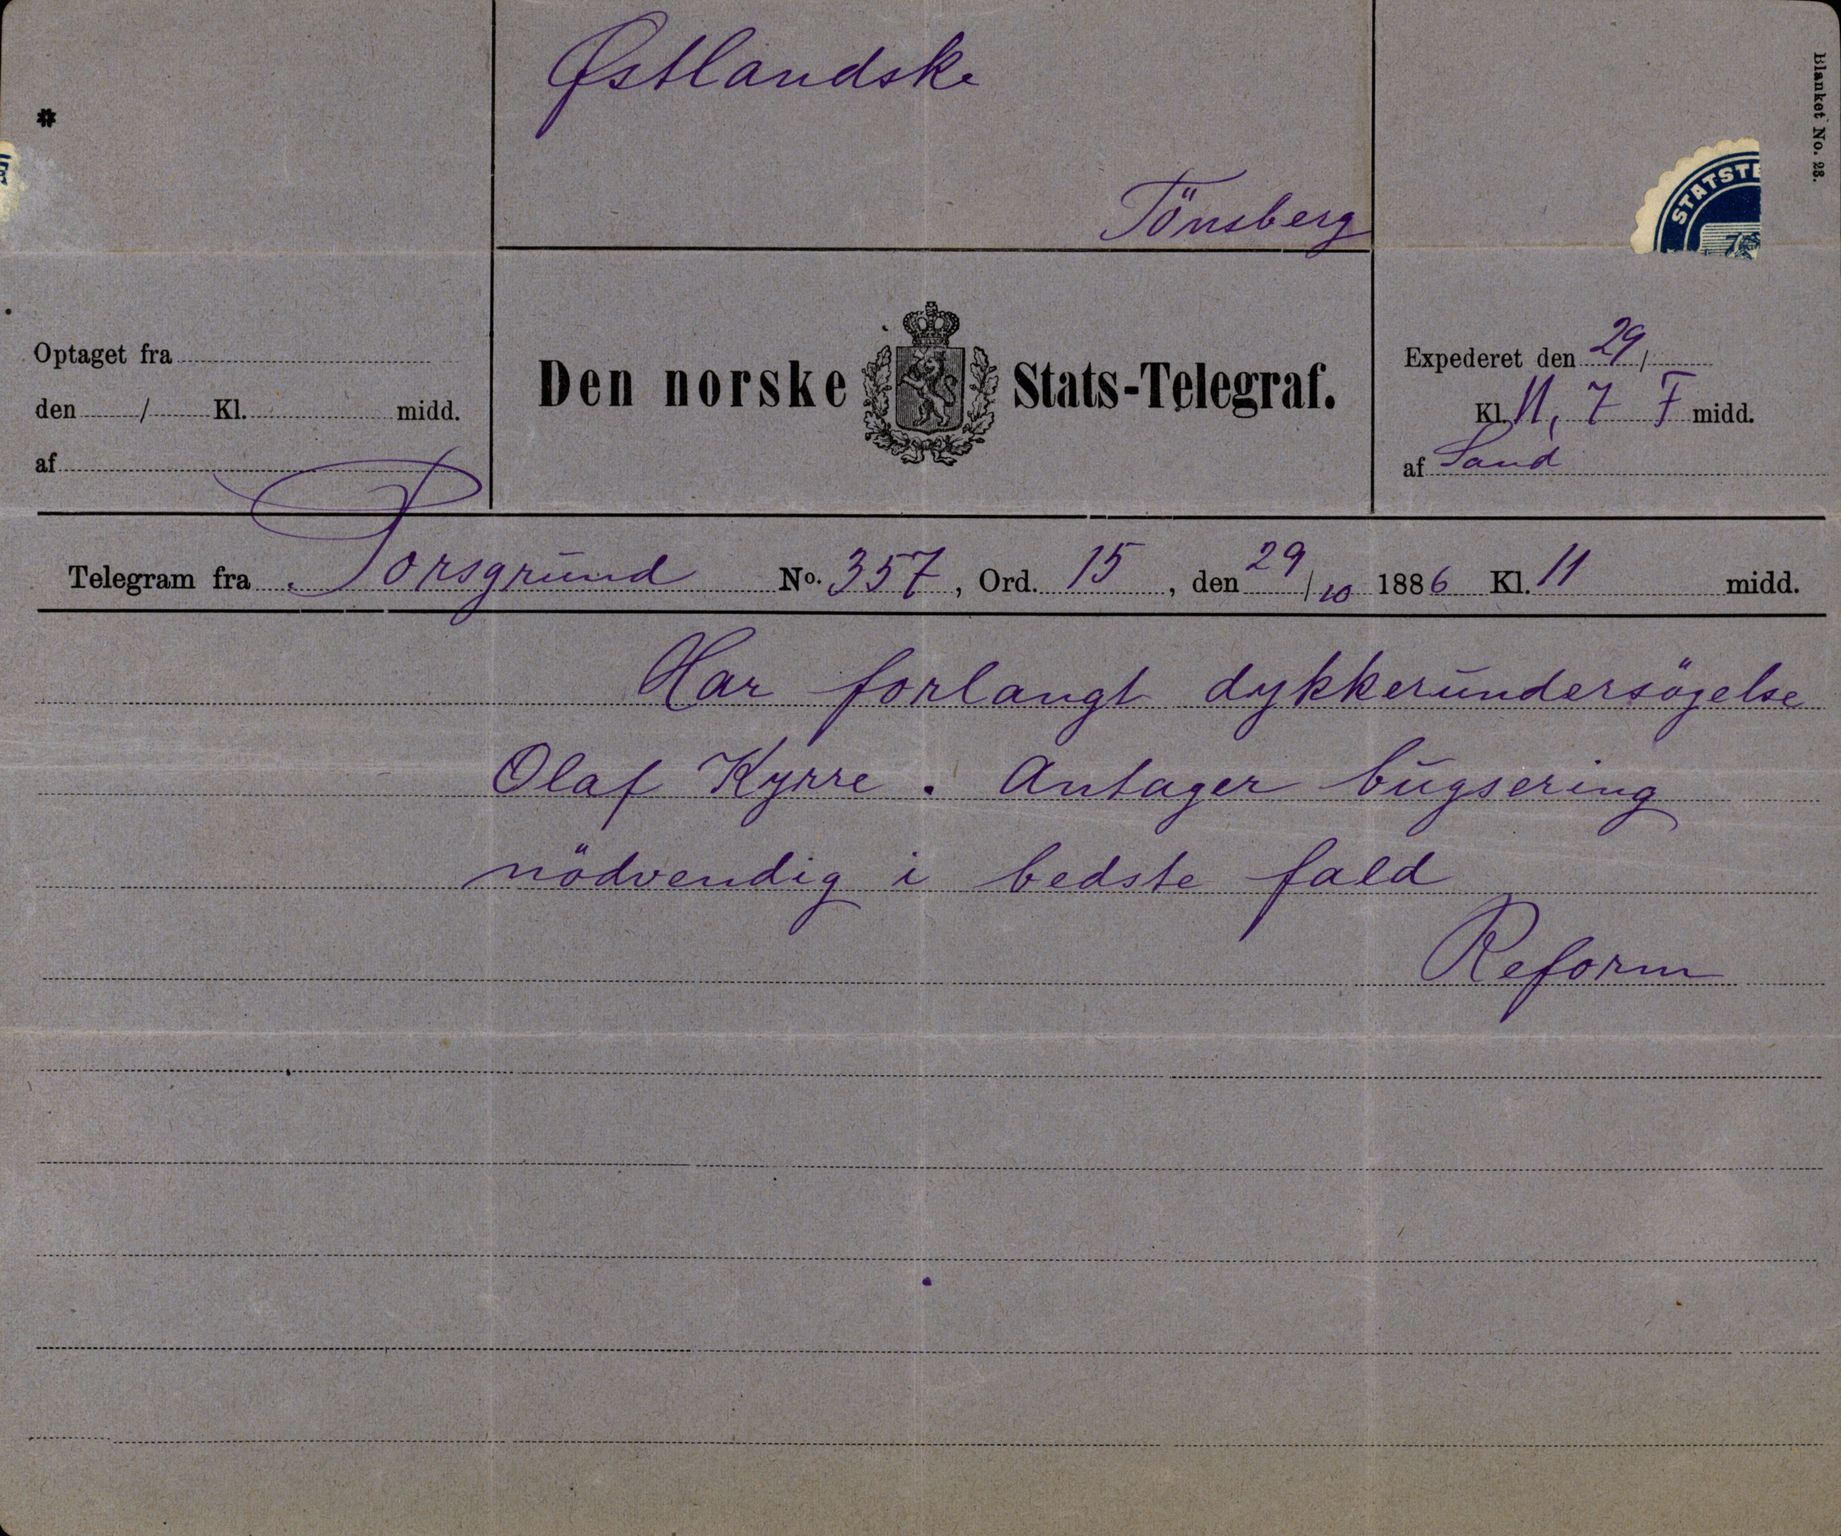 Østlandske
Tönsberg
Blanket No. 23.
STATSTE
Optaget fra
den / Kl. midd.
af
Den norske Stats-Telegraf.
Expederet den 29/
Kl. 11,7 F midd.
af Sand
Telegram fra Porsgrund No. 357, Ord. 15, den 29/10 1886 Kl. 11 midd.
Har forlangt dykkerundersögelse
Olaf Kyrre. Antager bugsering
nödvendig i bedste fald
Reform